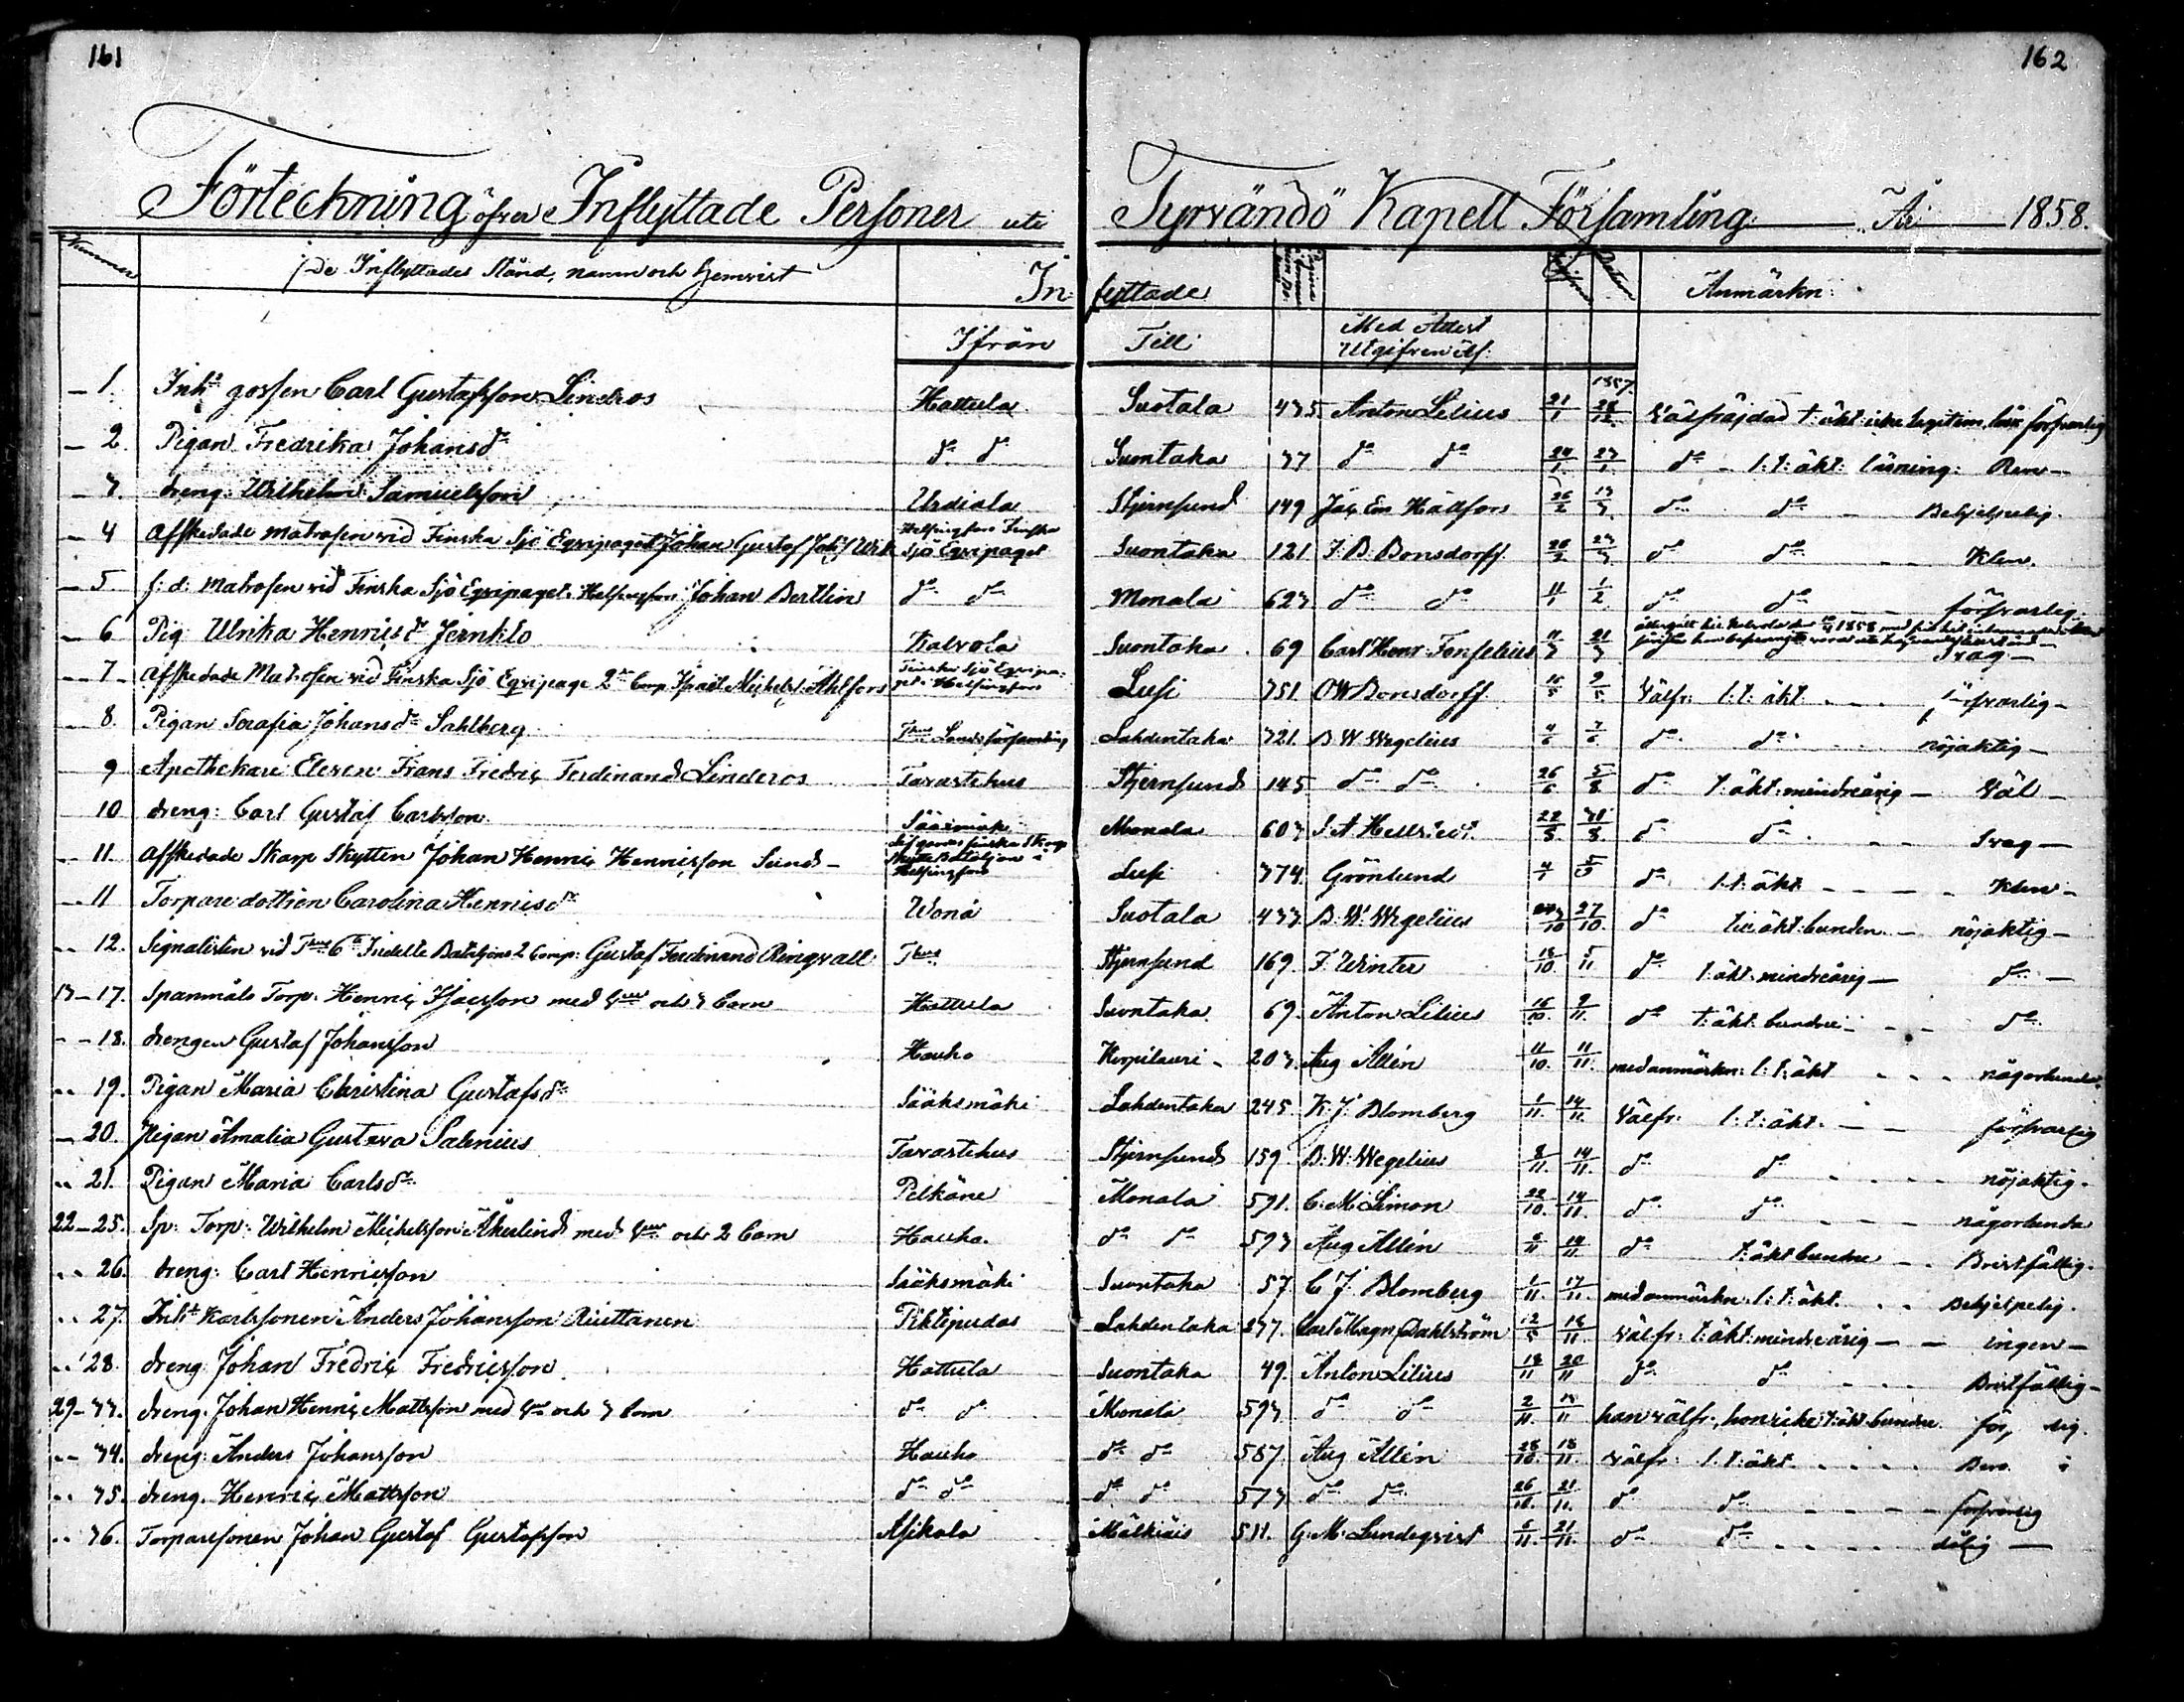 161
162
Förteckning öfver Inflyttade Personer uti Tyrvändö Kapell Församling År 1858.
Nummer De Inflyttades Stånd, namn och Hemvist In flyttade Anmärkn:
Ifrån Till Med Attest Utgifven af:
1. Inhs gossen Carl Gustafsson Lindros Hattula Suotala 435 Anton Lilius 21/1 1857 28/12 Välfräjdad t: äkt: icke legitim, läs försvarlig
2. Pigan Fredrika Johansdr do do Suontaka 37 do do 24/1 27/1 do l: t: äkt: läsning: Ren
3. dreng: Wilhelm Samuelsson Urdiala Stjernsund 149 Jac Em Hällfors 26/2 13/3 do do Behjelpelig.
4 Afskedade Matrosen vid Finska Sjö Eqvipaget Johan Gustaf Joh:s Wik Helsingfors Finska Sjö Eqvipaget Suontaka 121 J: B: Bonsdorff 26/2 27/3 do do Klen.
5 f: d: Matrosen vid Finska Sjö Eqvipaget i Helsingfors Johan Bertlin do do Monala 623 do do 11/1 1/2 do do försvarlig.
6 Pig: Ulrika Henricsdr Jernklo Kalvola Suontaka 69 Carl Henr: Fonselius 11/3 21/3 1858 Svag
7 Afskedade Matrosen vid Finska Sjö Eqvipage 2dra Comp Isac Michels: Ahlfors Finska Sjö Eqvipaget i Helsingfors Lusi 351 O W Bonsdorff 15/5 9/5 Välfr: l: t: äkt försvarlig
8. Pigan Serafia Johansdr Sahlberg Thus Landsförsamling Lahdentaka 321. B. W. Wegelius 4/6 7/6 do do nöjaktig
9 Apothekare Eleven Frans Fredric Ferdinand Linderos Tavastehus Stjernsund 145 do do 26/6 5/8 do t: äkt: mindreårig Väl
10 dreng: Carl Gustaf Carlsson Sääxmäk Monala 603 22/8 31/8 do do Svag
11. Afskedade Skarp Skytten Johan Henric Henricsson Sund Lifgardes finska Skarp Skytte Bataljon i Helsingfors Lusi 374. Grönlund do l: t: äkt Klen
11 Torpare dottren Carolina Henricsdr Wonå Suotala 433 B. W. Wegelius 27/10. do till äkt: bunden nöjaktig
12. Signalisten vid Thus 6te Indelte Bataljons 2 Comp: Gustaf Ferdinand Ringvall Thus Stjernsund 169. F. Winter 18/10. 5/11 do t: äkt: mindreårig do
13-17. Spanmåls Torp: Henric Isacsson med hust och 3 Barn Hattula Suontaka 69. Anton Lilius 16/10. 9/11. do t: äkt: bundne do
18. drengen Gustaf Johansson Hauho Korpilauri 203 Aug Allén 11/10. 11/11. med anmärkn: l: t: äkt någorlunda
19. Pigan Maria Christina Gustafsdr Sääksmäki Lahdentaka 245. K. J. Blomberg 1/11. 14/11. Välfr: l: t: äkt: försvarlig
20. Pigan Amalia Gustava Salenius Tavastehus Stjernsund 159. B. W. Wegelius 8/11. 14/11. do do nöjaktig.
21. Pigan Maria Carlsdr Pelkäne Monala 591. C. M. Limon 22/10. 14/11. do do någorlunda
22-25. Sp: Torp: Wilhelm Michelsson Åkerlind med hust och 2 Barn Hauho do do 593 Aug Allén 6/11 14/11 do t: äkt bundne Bristfällig.
26. dreng: Carl Henricsson Sääksmäki Suontaka 57. C J. Blomberg 1/11. 17/11. med anmärkn. l: t: äkt. Behjelpelig.
27. Inhs Karlssonen Anders Johansson Riuttanen Pihtipudas Lahdentaka 237. Carl Magn. Dahlström 12/5 18/11. Välfr: t: äkt: mindreårig ingen
28. dreng: Johan Fredric Fredricsson Hattula Suontaka 49. Anton Lilius 18/11 20/11 do do Bristfällig
29-33. dreng. Johan Henric Mattsson med hu och 3 Barn do do Monala 593 do do 2/11 han välfr:, hon icke t: äkt: bundne för, sig.
34. dreng: Anders Johansson Hauho do do 587. Aug Allén 28/10. 18/11. Välfr: l: t: äkt
35. dreng. Henric Mattsson do do do do 573 do do 26/10. 21/11. do do försvarlig
36. Torparesonen Johan Gustaf Gustafsson Asikala Mälkiäis 511. G. M. Lundqvist 6/11. 21/11. do do dålig